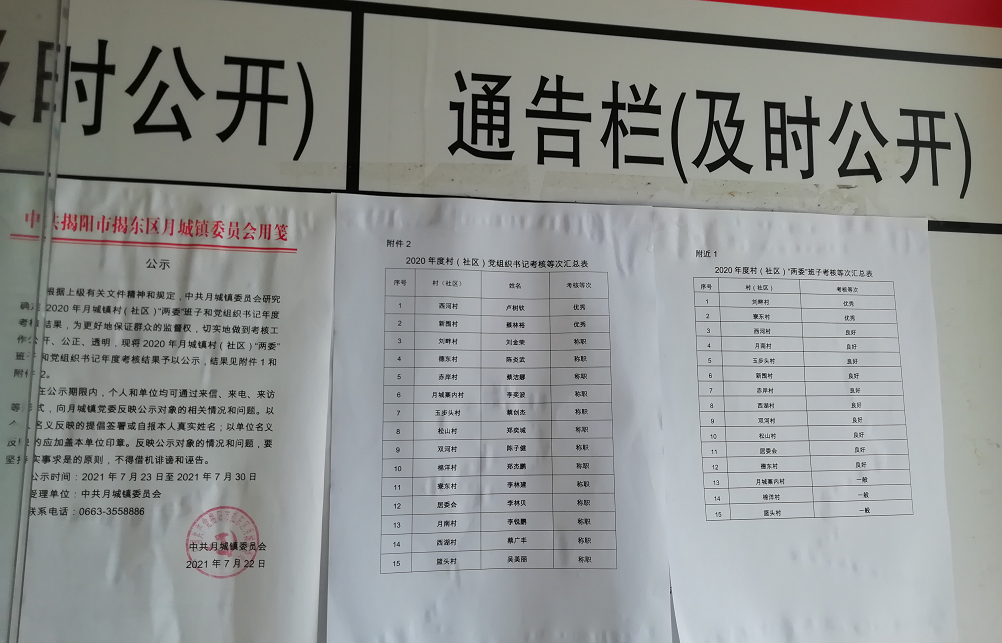 及时公开)
通告栏(及时公开)
中共揭阳市揭东区月城镇委员会用笺
公示
根据上级有关文件精神和规定，中共月城镇委员会研究
确定2020年月城镇村（社区）“两委”班子和党组织书记年度
考核结果，为更好地保证群众的监督权，切实地做到考核工
作公开、公正、透明，现将2020年月城镇村（社区）“两委”
班子和党组织书记年度考核结果予以公示，结果见附件1和
附件2。
在公示期限内，个人和单位均可通过来信、来电、来访
等形式，向月城镇党委反映公示对象的相关情况和问题。以
个人名义反映的提倡签署或自报本人真实姓名；以单位名义
反映的应加盖本单位印章。反映公示对象的情况和问题，要
坚持实事求是的原则，不得借机诽谤和诬告。
公示时间：2021年7月23日至2021年7月30日
受理单位：中共月城镇委员会
联系电话：0663-3558886
中共月城镇委员会
2021年7月22日
附件2
2020年度村（社区）党组织书记考核等次汇总表
序号 村（社区） 姓名 考核等次
1 西河村 卢树钦 优秀
2 新围村 蔡林裕 优秀
3 刘畔村 刘金荣 称职
4 穗东村 陈炎武 称职
5 赤岸村 蔡洁娜 称职
6 月城寨内村 李奕波 称职
7 玉步头村 蔡创杰 称职
8 松山村 郑奕城 称职
9 双河村 陈子健 称职
10 棉洋村 郑杰鹏 称职
11 寮东村 李林雄 称职
12 居委会 李林贝 称职
13 月南村 李锐鹏 称职
14 西湖村 蔡广丰 称职
15 篮头村 吴美丽 称职
附近1
2020年度村（社区）“两委”班子考核等次汇总表
序号 村（社区） 考核等次
1 刘畔村 优秀
2 寮东村 优秀
3 西河村 良好
4 月南村 良好
5 玉步头村 良好
6 新围村 良好
7 赤岸村 良好
8 西湖村 良好
9 双河村 良好
10 松山村 良好
11 居委会 良好
12 穗东村 良好
13 月城寨内村 一般
14 棉洋村 一般
15 篮头村 一般